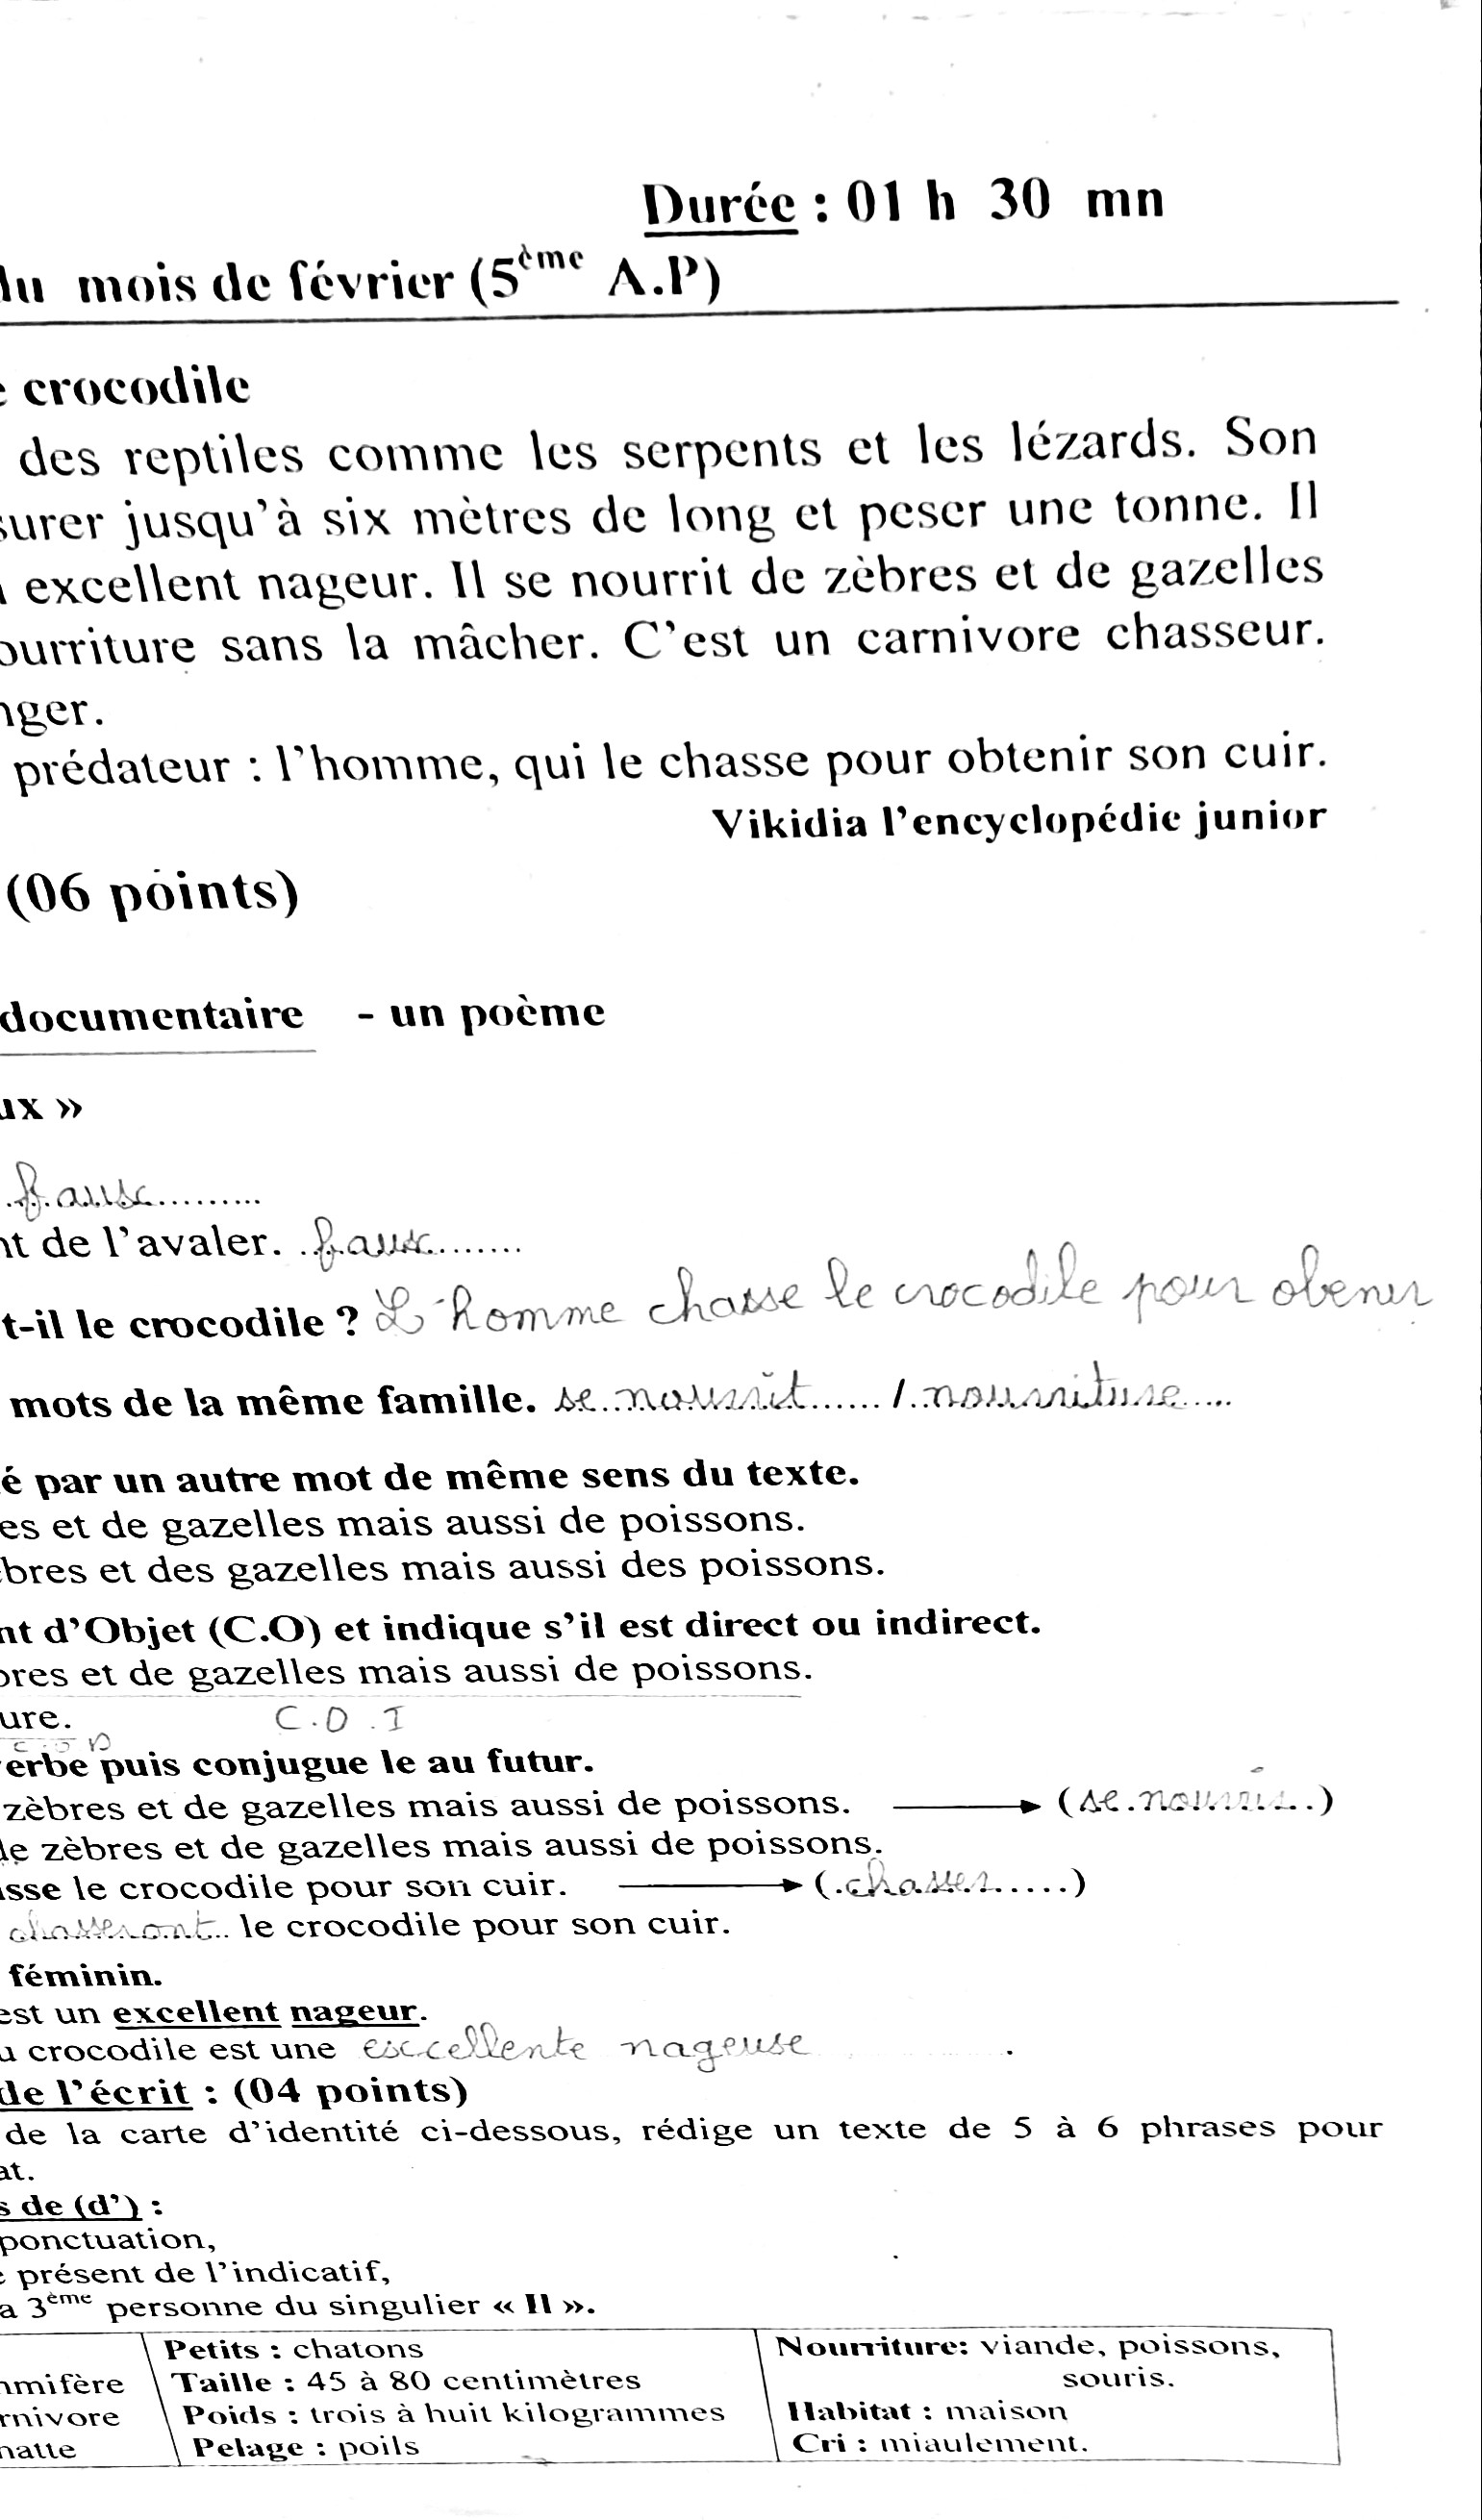 Durée : 01 h 30 mn
du mois de février (5ème A.P)
crocodile
des reptiles comme les serpents et les lézards. Son
surer jusqu'à six mètres de long et peser une tonne. Il
excellent nageur. Il se nourrit de zèbres et de gazelles
ourriture sans la mâcher. C'est un carnivore chasseur.
nger.
prédateur : l'homme, qui le chasse pour obtenir son cuir.
Vikidia l'encyclopédie junior
(06 points)
documentaire - un poème
ux »
faux
nt de l'avaler. faux
t-il le crocodile ? L'homme chasse le crocodile pour obenir
mots de la même famille. se nourrit / nourriture
é par un autre mot de même sens du texte.
es et de gazelles mais aussi de poissons.
bres et des gazelles mais aussi des poissons.
nt d'Objet (C.O) et indique s'il est direct ou indirect.
bres et de gazelles mais aussi de poissons.
ure. C.O.I
C.O.D
erbe puis conjugue le au futur.
zèbres et de gazelles mais aussi de poissons. (se nourrir)
de zèbres et de gazelles mais aussi de poissons.
asse le crocodile pour son cuir. (chasser)
chasseront le crocodile pour son cuir.
féminin.
est un excellent nageur.
u crocodile est une excellente nageuse .
de l'écrit : (04 points)
de la carte d'identité ci-dessous, rédige un texte de 5 à 6 phrases pour
at.
s de (d') :
ponctuation,
e présent de l'indicatif,
a 3ème personne du singulier « Il ».
Petits : chatons Nourriture: viande, poissons,
mmifère Taille : 45 à 80 centimètres souris.
rnivore Poids : trois à huit kilogrammes Habitat : maison
hatte Pelage : poils Cri : miaulement.